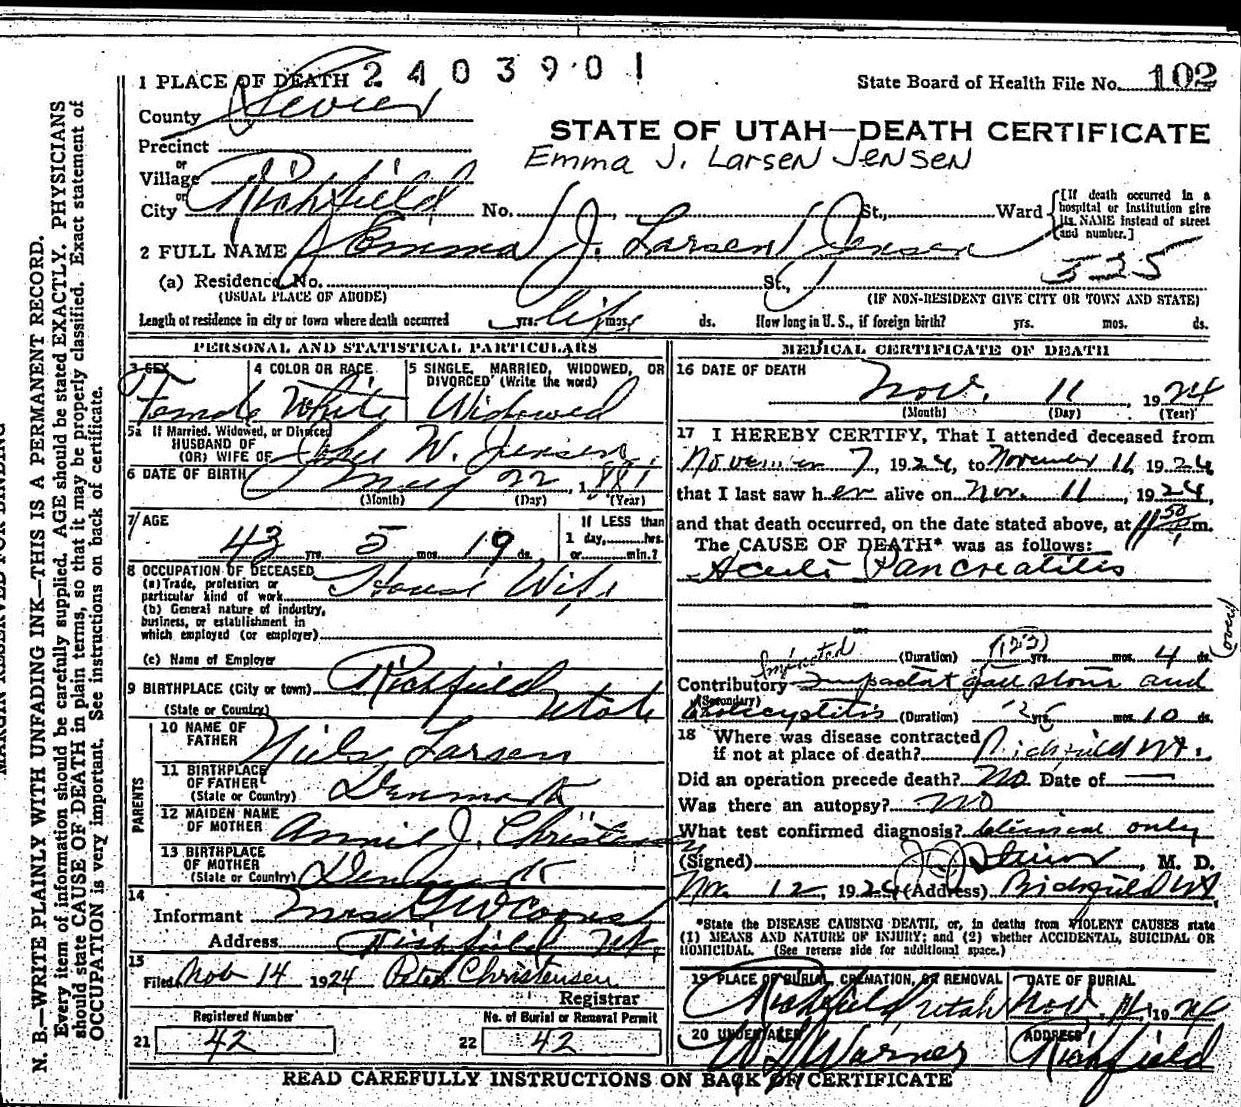 2403901
1 PLACE OF DEATH
State Board of Health File No. 102
County Sevier
STATE OF UTAH—DEATH CERTIFICATE
Precinct
Emma J. Larsen Jensen
or
Village
or
City Richfield No. St., Ward
[If death occurred in a hospital or institution give its NAME instead of street and number.]
2 FULL NAME Emma J. Larsen Jensen
(a) Residence No. St., 525
(USUAL PLACE OF ABODE) (IF NON-RESIDENT GIVE CITY OR TOWN AND STATE)
Length of residence in city or town where death occurred yrs. life mos. ds. How long in U. S., if foreign birth? yrs. mos. ds.
PERSONAL AND STATISTICAL PARTICULARS
3 SEX Female
4 COLOR OR RACE White
5 SINGLE, MARRIED, WIDOWED, OR DIVORCED (Write the word) Widowed
5a If Married, Widowed, or Divorced
HUSBAND OF
(OR) WIFE OF W. Jensen
6 DATE OF BIRTH May 22, 1881
(Month) (Day) (Year)
7 AGE 43 yrs. 5 mos. 19 ds.
If LESS than 1 day, hrs. or min.?
8 OCCUPATION OF DECEASED
(a) Trade, profession or particular kind of work House Wife
(b) General nature of industry, business, or establishment in which employed (or employer)
(c) Name of Employer
9 BIRTHPLACE (City or town) Richfield
(State or Country) Utah
PARENTS
10 NAME OF FATHER Niels Larsen
11 BIRTHPLACE OF FATHER (State or Country) Denmark
12 MAIDEN NAME OF MOTHER Annie J. Christensen
13 BIRTHPLACE OF MOTHER (State or Country) Denmark
14
Informant
Address Richfield Ut.
15
Filed Nov 14 1924 Peter Christensen
Registrar
Registered Number No. of Burial or Removal Permit
21 42 22 42
MEDICAL CERTIFICATE OF DEATH
16 DATE OF DEATH
Nov. 11 1924
(Month) (Day) (Year)
17 I HEREBY CERTIFY, That I attended deceased from
November 7, 1924, to November 11, 1924
that I last saw her alive on Nov. 11, 1924,
and that death occurred, on the date stated above, at 11 50 m.
The CAUSE OF DEATH* was as follows:
Acute Pancreatitis
(over)
(Duration) yrs. mos. 4 ds.
Impacted
Contributory Impactat gall stone and
(Secondary)
Cholicystitis (Duration) yrs. mos. 10 ds.
18 Where was disease contracted
if not at place of death? Richfield Ut.
Did an operation precede death? No Date of —
Was there an autopsy? no
What test confirmed diagnosis? Clinical only
(Signed) , M. D.
Nov. 12, 1924 (Address) Richfield Ut
*State the DISEASE CAUSING DEATH, or, in deaths from VIOLENT CAUSES state
(1) MEANS AND NATURE OF INJURY; and (2) whether ACCIDENTAL, SUICIDAL OR
HOMICIDAL. (See reverse side for additional space.)
19 PLACE OF BURIAL, CREMATION, OR REMOVAL DATE OF BURIAL
Richfield Utah Nov. 1924
20 UNDERTAKER ADDRESS
Warner Richfield
READ CAREFULLY INSTRUCTIONS ON BACK OF CERTIFICATE
MARGIN RESERVED FOR BINDING
N. B.—WRITE PLAINLY WITH UNFADING INK—THIS IS A PERMANENT RECORD.
Every item of information should be carefully supplied. AGE should be stated EXACTLY. PHYSICIANS
should state CAUSE OF DEATH in plain terms, so that it may be properly classified. Exact statement of
OCCUPATION is very important. See instructions on back of certificate.